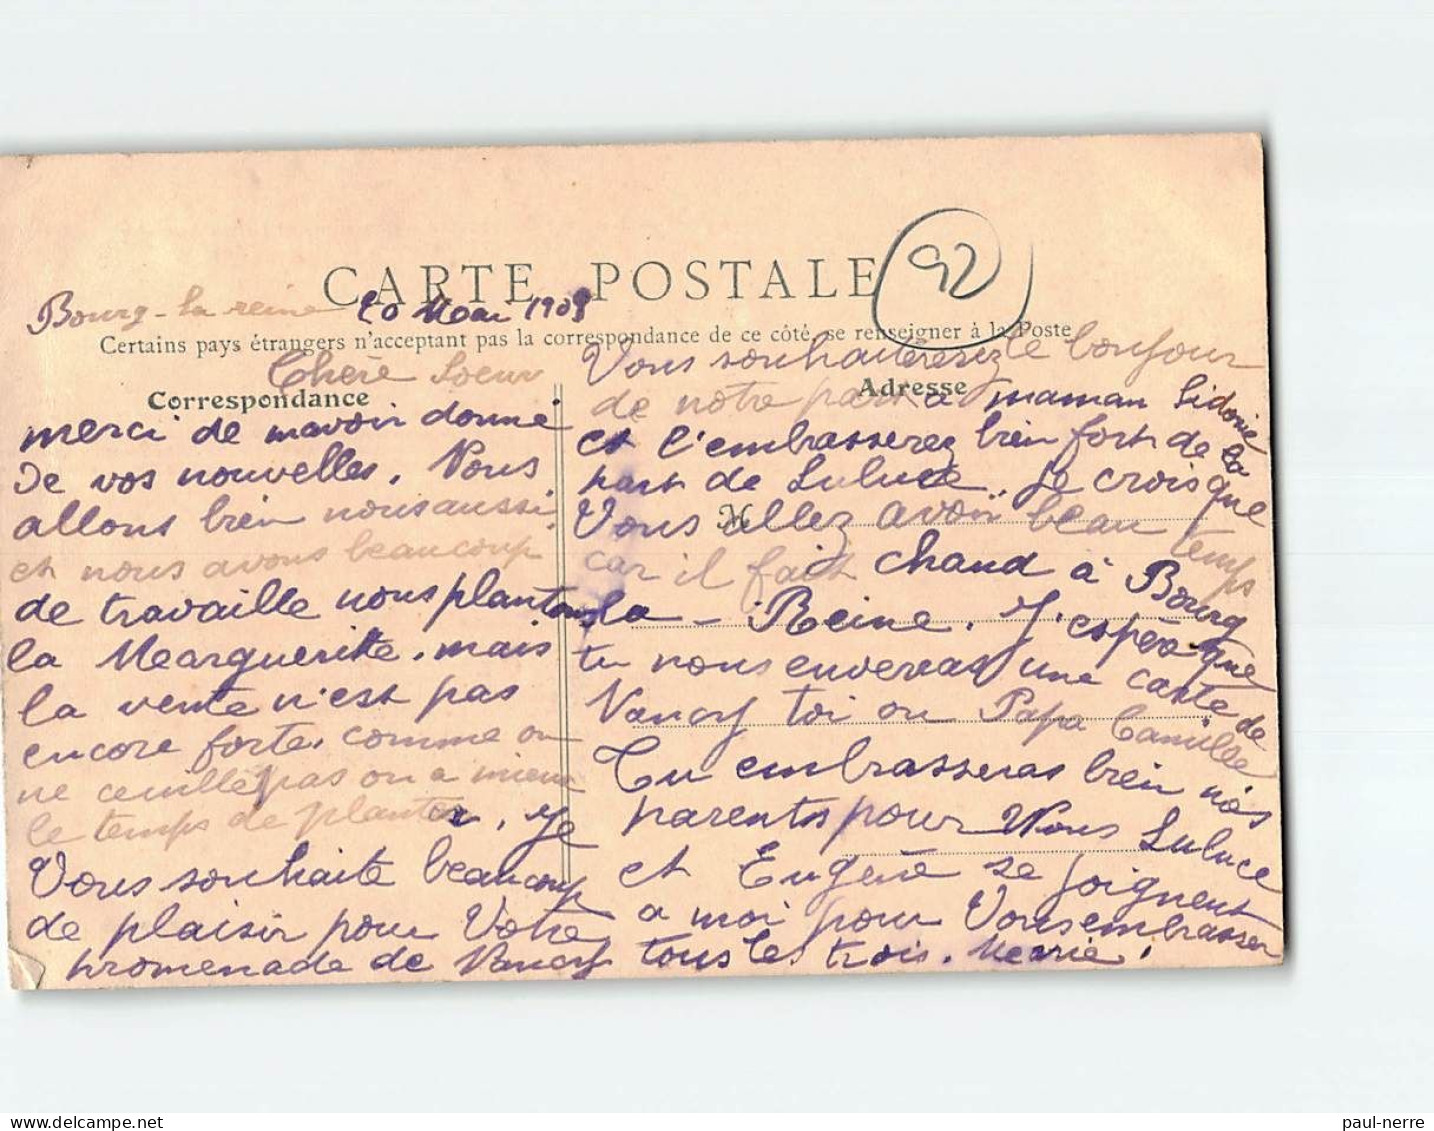 CARTE POSTALE
92
Bourg-la reine 20 Mai 1908
Certains pays étrangers n'acceptant pas la correspondance de ce côté, se renseigner à la Poste
Correspondance
Chère Soeur
merci de mavoir donné
De vos nouvelles. Nous
allons bien nous aussi,
et nous avons beaucoup
de travaille nous plantons
la Marguerite. mais
la vente n'est pas
encore forte. comme on
ne ceuille pas on a mieux
le temps de planter. Je
Vous souhaite beaucoup
de plaisir pour Votre
promenade de Nancy
Adresse
M
Vous souhaiterez le bonjour
de notre part a maman Sidonie
et l'embrasserez bien fort de la
part de Lulute. Je crois que
Vous allez avoir beau temps
car il fait chaud à Bourg
la - Reine. J'espère que
tu nous enverras une carte de
Nancy toi ou Papa Camille
Tu embrasseras bien nos
parents pour Nous Luluce
et Eugène se joignent
a moi pour Vous embrasser
tous les trois. Marie.
paul-nerre